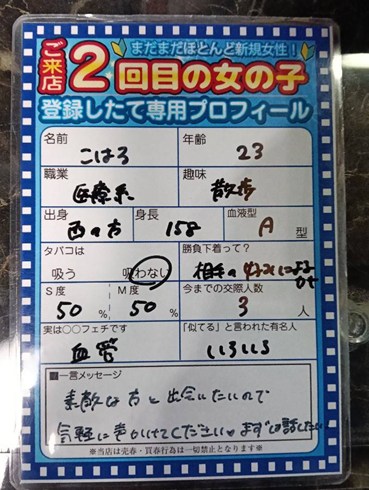 まだまだほとんど新規女性！
ご来店2回目の女の子
登録したて専用プロフィール
名前 こはる 年齢 23
職業 医療系 趣味 散歩
出身 西の方 身長 158 血液型 A 型
タバコは 吸う 吸わない 勝負下着って？ 相手の
S度 50% M度 50% 今までの交際人数 3 人
実は○○フェチです 血管 「似てる」と言われた有名人 いろいろ
■一言メッセージ
素敵な方と出会いたいので
気軽に声かけてください まずは話したい
※当店は売春・買春行為は一切禁止となります※